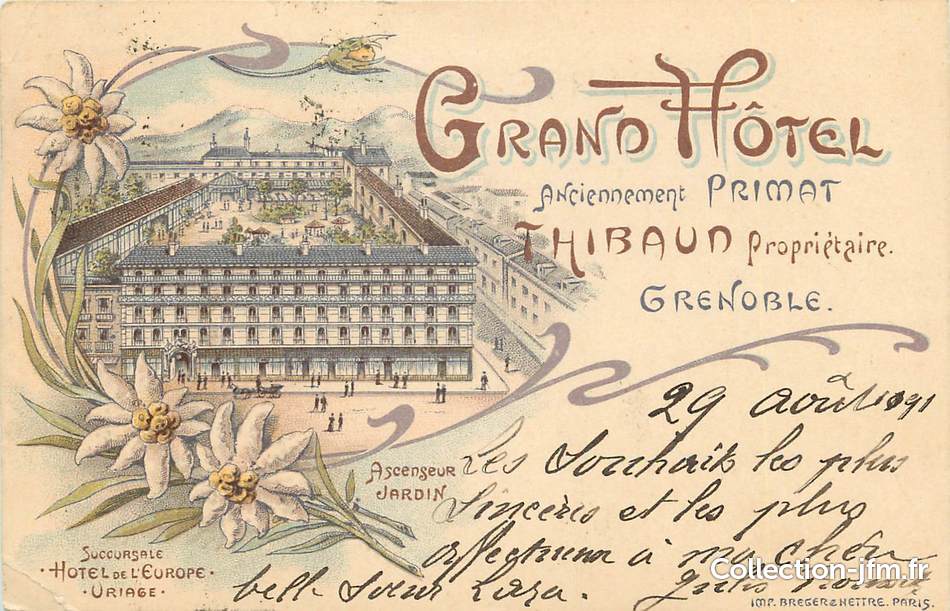 GRAND HÔTEL
Anciennement PRIMAT
THIBAUD Propriétaire.
GRENOBLE.
29 août 1901
Les Souhaits les plus
Sincères et les plus
affectueux à ma chère
belle Sœur Laza. Jules
ASCENSEUR
JARDIN
SUCCURSALE
• HOTEL DE L'EUROPE •
• URIAGE •
Collection-jfm.fr
IMP. BREGER & HETTRE. PARIS.